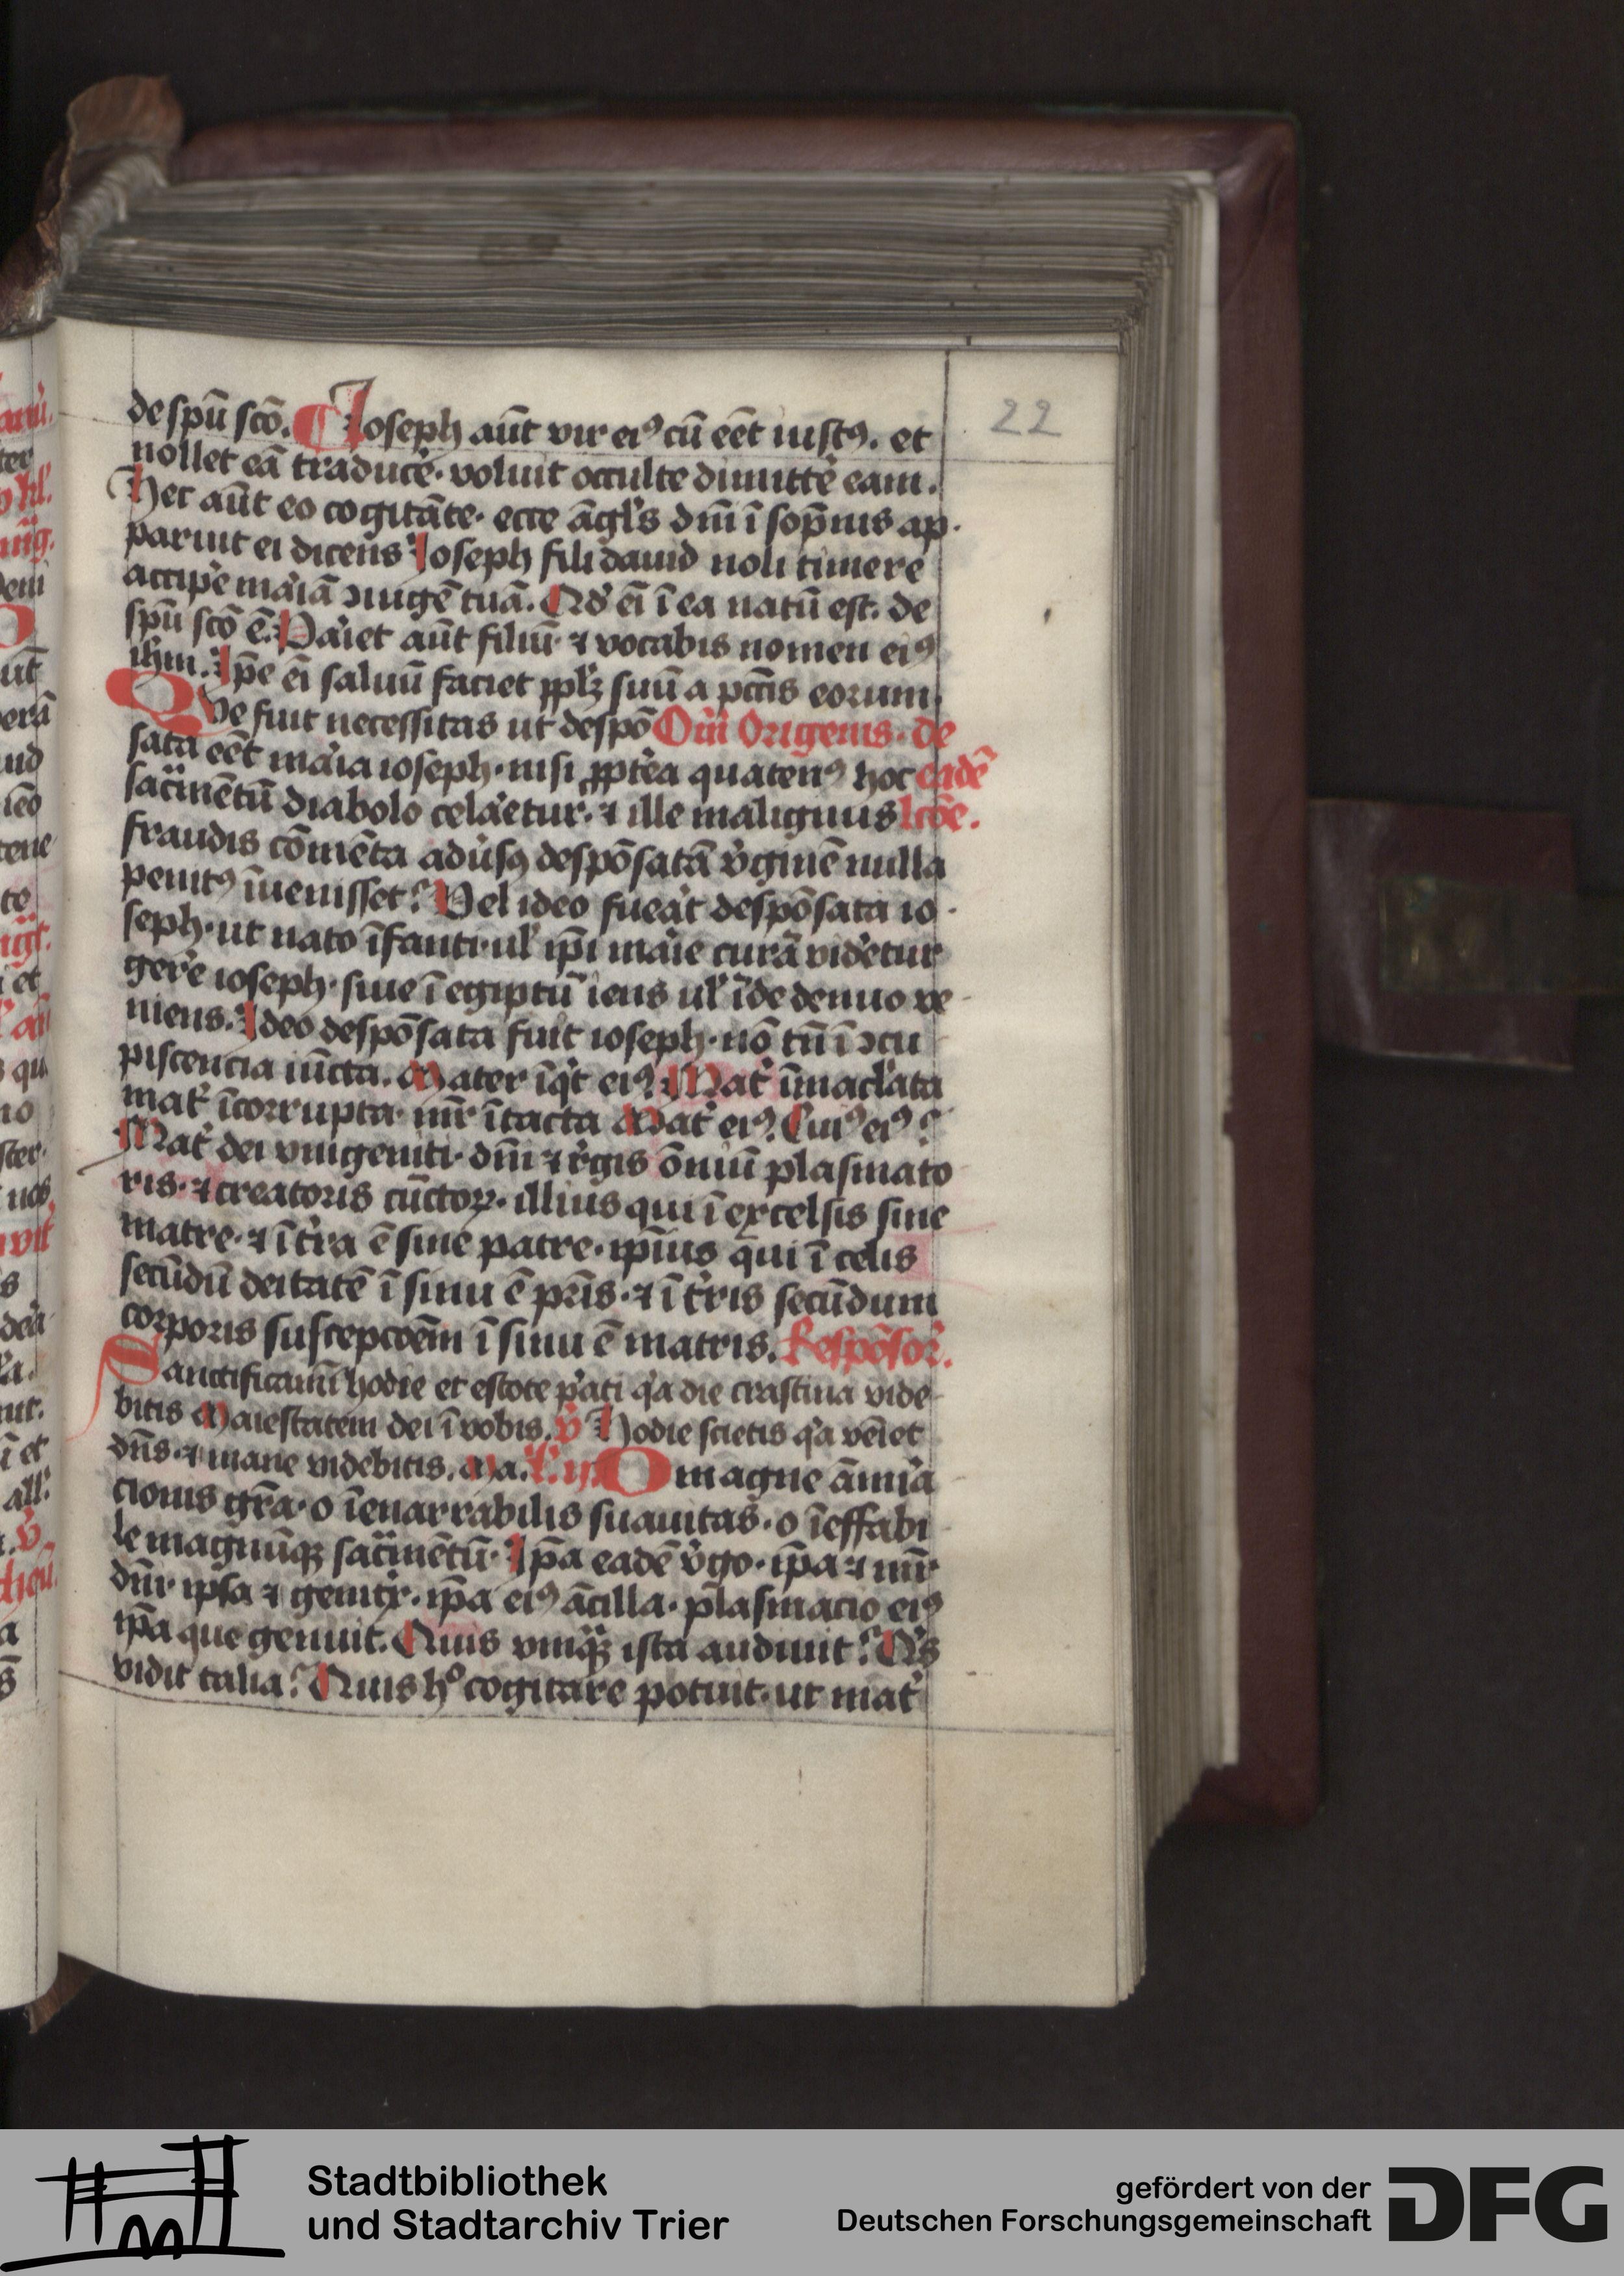 22
de spū scō. Ioseph aūt vir eiꝰ cū eēt iustꝰ. et
nollet eā traducẻ. voluit occulte dimittẻ eam.
Hec aūt eo cogitāte. ecce āgl's dn̄i ī sop̄nis ap-
paruit ei dicens Ioseph fili dauid noli timere
accipẻ maͥiā ɔiugē tuā. Qd' eī ī ea natū est. de
spū scō ē. Paͥiet aūt filiū ⁊ vocabis nomen eiꝰ
ihm. Ip̄e eī saluū faciet pp̄lꝫ suū a pctīs eorum.
QVe fuit necessitas ut despō Om̄i Origenis. de
sata eēt maͥia ioseph. nisi ꝓpt'ea quaten̄ꝰ hoc eadē
sac̈mētū diabolo celaͥetur. ⁊ ille malignus lcōe.
fraudis cōmēta adúsꝰ despōsatā v̓ginē nulla
penitꝰ īuenisset? Vel ideo fueàt despōsata io-
seph. ut nato īfanti. ul' ip̄i maͥie curā videtur
gerẻ ioseph. siue ī egiptū iens ul' īde denuo ve-
niens. Ideo despōsata fuit ioseph. nō tn̄ ī ɔcu
piscencia iūcta. Mater īqͥt eiꝰ? Mat' īmacl'ata
mat' īcorrupta. mr̄ ītacta Mat' eiꝰ. Cuiꝰ eiꝰ?
Mat' dei vnigeniti. dn̄i ⁊ r̓gis ōniū plasmato
ris. ⁊ creatoris cūctoꝝ. illius qui ī excelsis sine
matre. ⁊ ī t̓ra ē sine patre. ip̄ius qui ī celis
secūdū deitatē ī sinu ē pr̄is. ⁊ ī t̓ris secūdum
corporis suscepcoēm ī sinu ē matris. Respōsor'.
Sanctificamī hodie et estote ꝑati qͥa die crastina vide-
bitis Maiestatem dei ī vobis. v̓ Hodie scietis qͥa vēiet
dn̄s. ⁊ mane videbitis. Ma. O magne āmiͥa
cionis gr̄a. o īenarrabilis suauitas. o īeffabi
le magnūqꝫ sac̈mētū. Ip̄a eadē v̓go. ip̄a ⁊ mr̄
dn̄i. ipsa ⁊ genitͥx. ip̄a eiꝰ ācilla. plasmacio eiꝰ
ip̄a que genuit. Quis vnqͣꝫ ista audiuit? Qͥs
vidit talia? Quis hº cogitare potuit. ut mat'
Stadtbibliothek
und Stadtarchiv Trier
gefördert von der
Deutschen Forschungsgemeinschaft
DFG